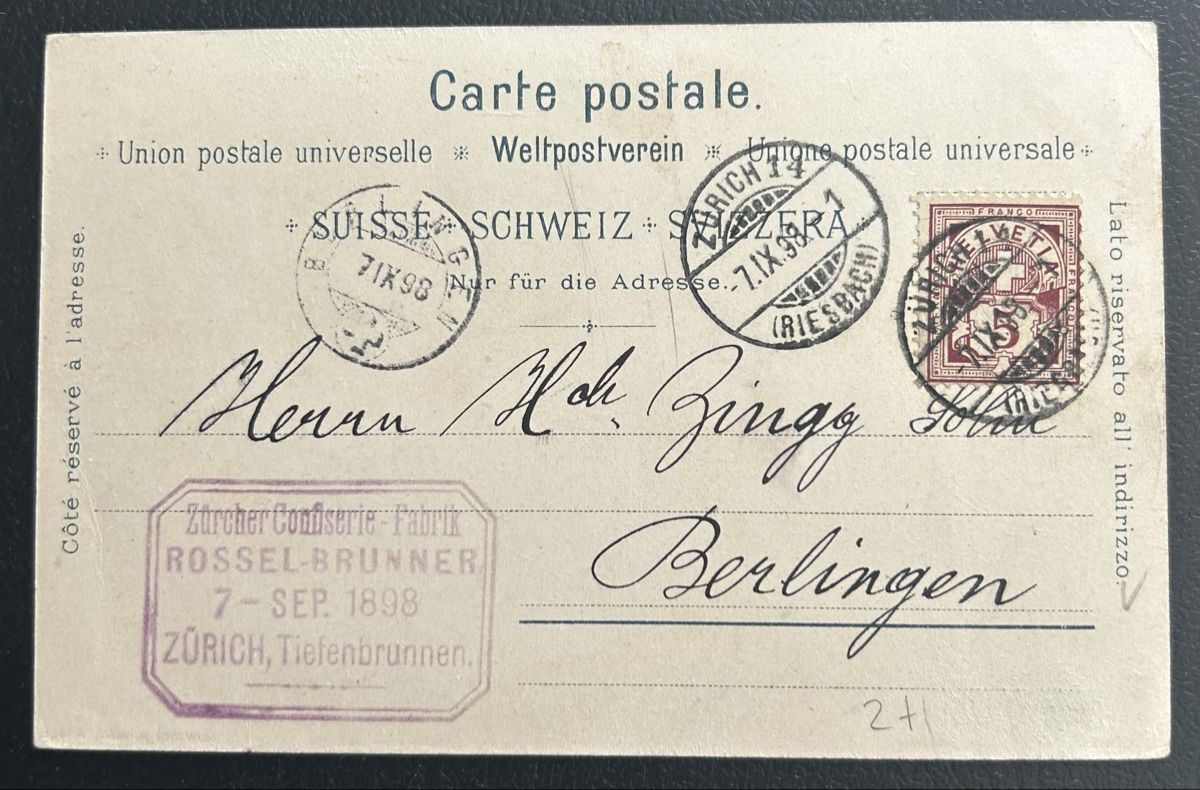 Carte postale.
Union postale universelle * Weltpostverein * Unione postale universale
SUISSE SCHWEIZ SVIZZERA
Nur für die Adresse.
Côté réservé à l'adresse.
Lato riservato all' indirizzo.
BERLINGEN
7 IX 98
ZÜRICH 14
-7.IX.98.-1
(RIESBACH)
FRANCO
HELVETIA
5
ZÜRICH 14
-7.IX.98.-1
(RIESBACH)
Herrn Zingg Sohn
Berlingen
Zürcher Confiserie-Fabrik
ROSSEL-BRUNNER
7 - SEP. 1898
ZÜRICH, Tiefenbrunnen.